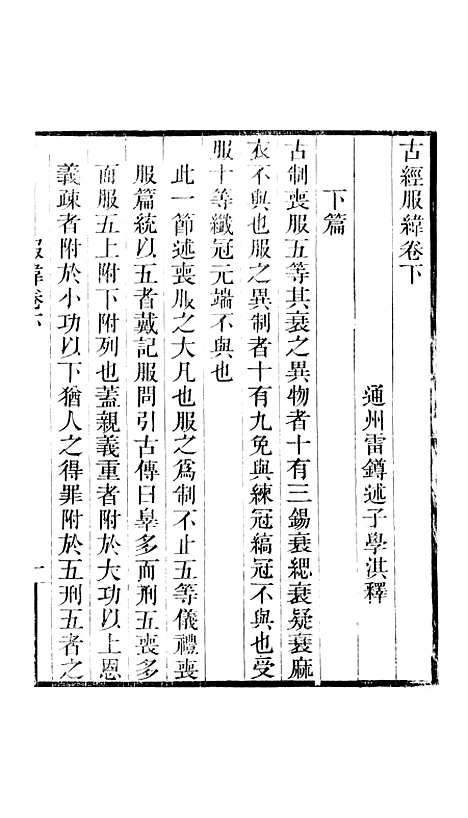 古經服緯卷下
通州雷鐏述子學淇釋
下篇
古制喪服五等其衰之異物者十有三錫衰緦衰疑衰麻
衣不與也服之異制者十有九免與練冠縞冠不與也受
服十等纖冠元端不與也
此一節述喪服之大凡也服之爲制不止五等儀禮喪
服篇統以五者戴記服問引古傳曰辠多而刑五喪多
而服五上附下附列也蓋親義重者附於大功以上恩
義疎者附於小功以下猶人之得罪附於五刑五者之
服緯卷下
一